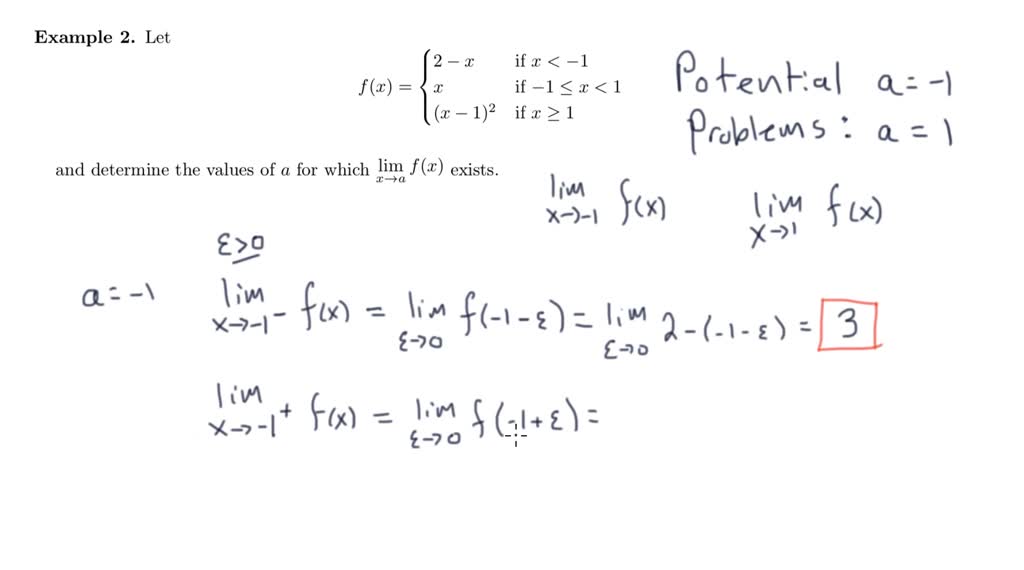 Example 2. Let
f(x) = { 2 − x if x < −1
x if −1 ≤ x < 1
(x − 1)² if x ≥ 1
Potential a = -1
Problems: a = 1
and determine the values of a for which lim x→a f(x) exists.
lim x→-1 f(x) lim x→1 f(x)
ε>0
a = -1 lim x→-1⁻ f(x) = lim ε→0 f(-1-ε) = lim ε→0 2-(-1-ε) = 3
lim x→-1⁺ f(x) = lim ε→0 f(-1+ε) =